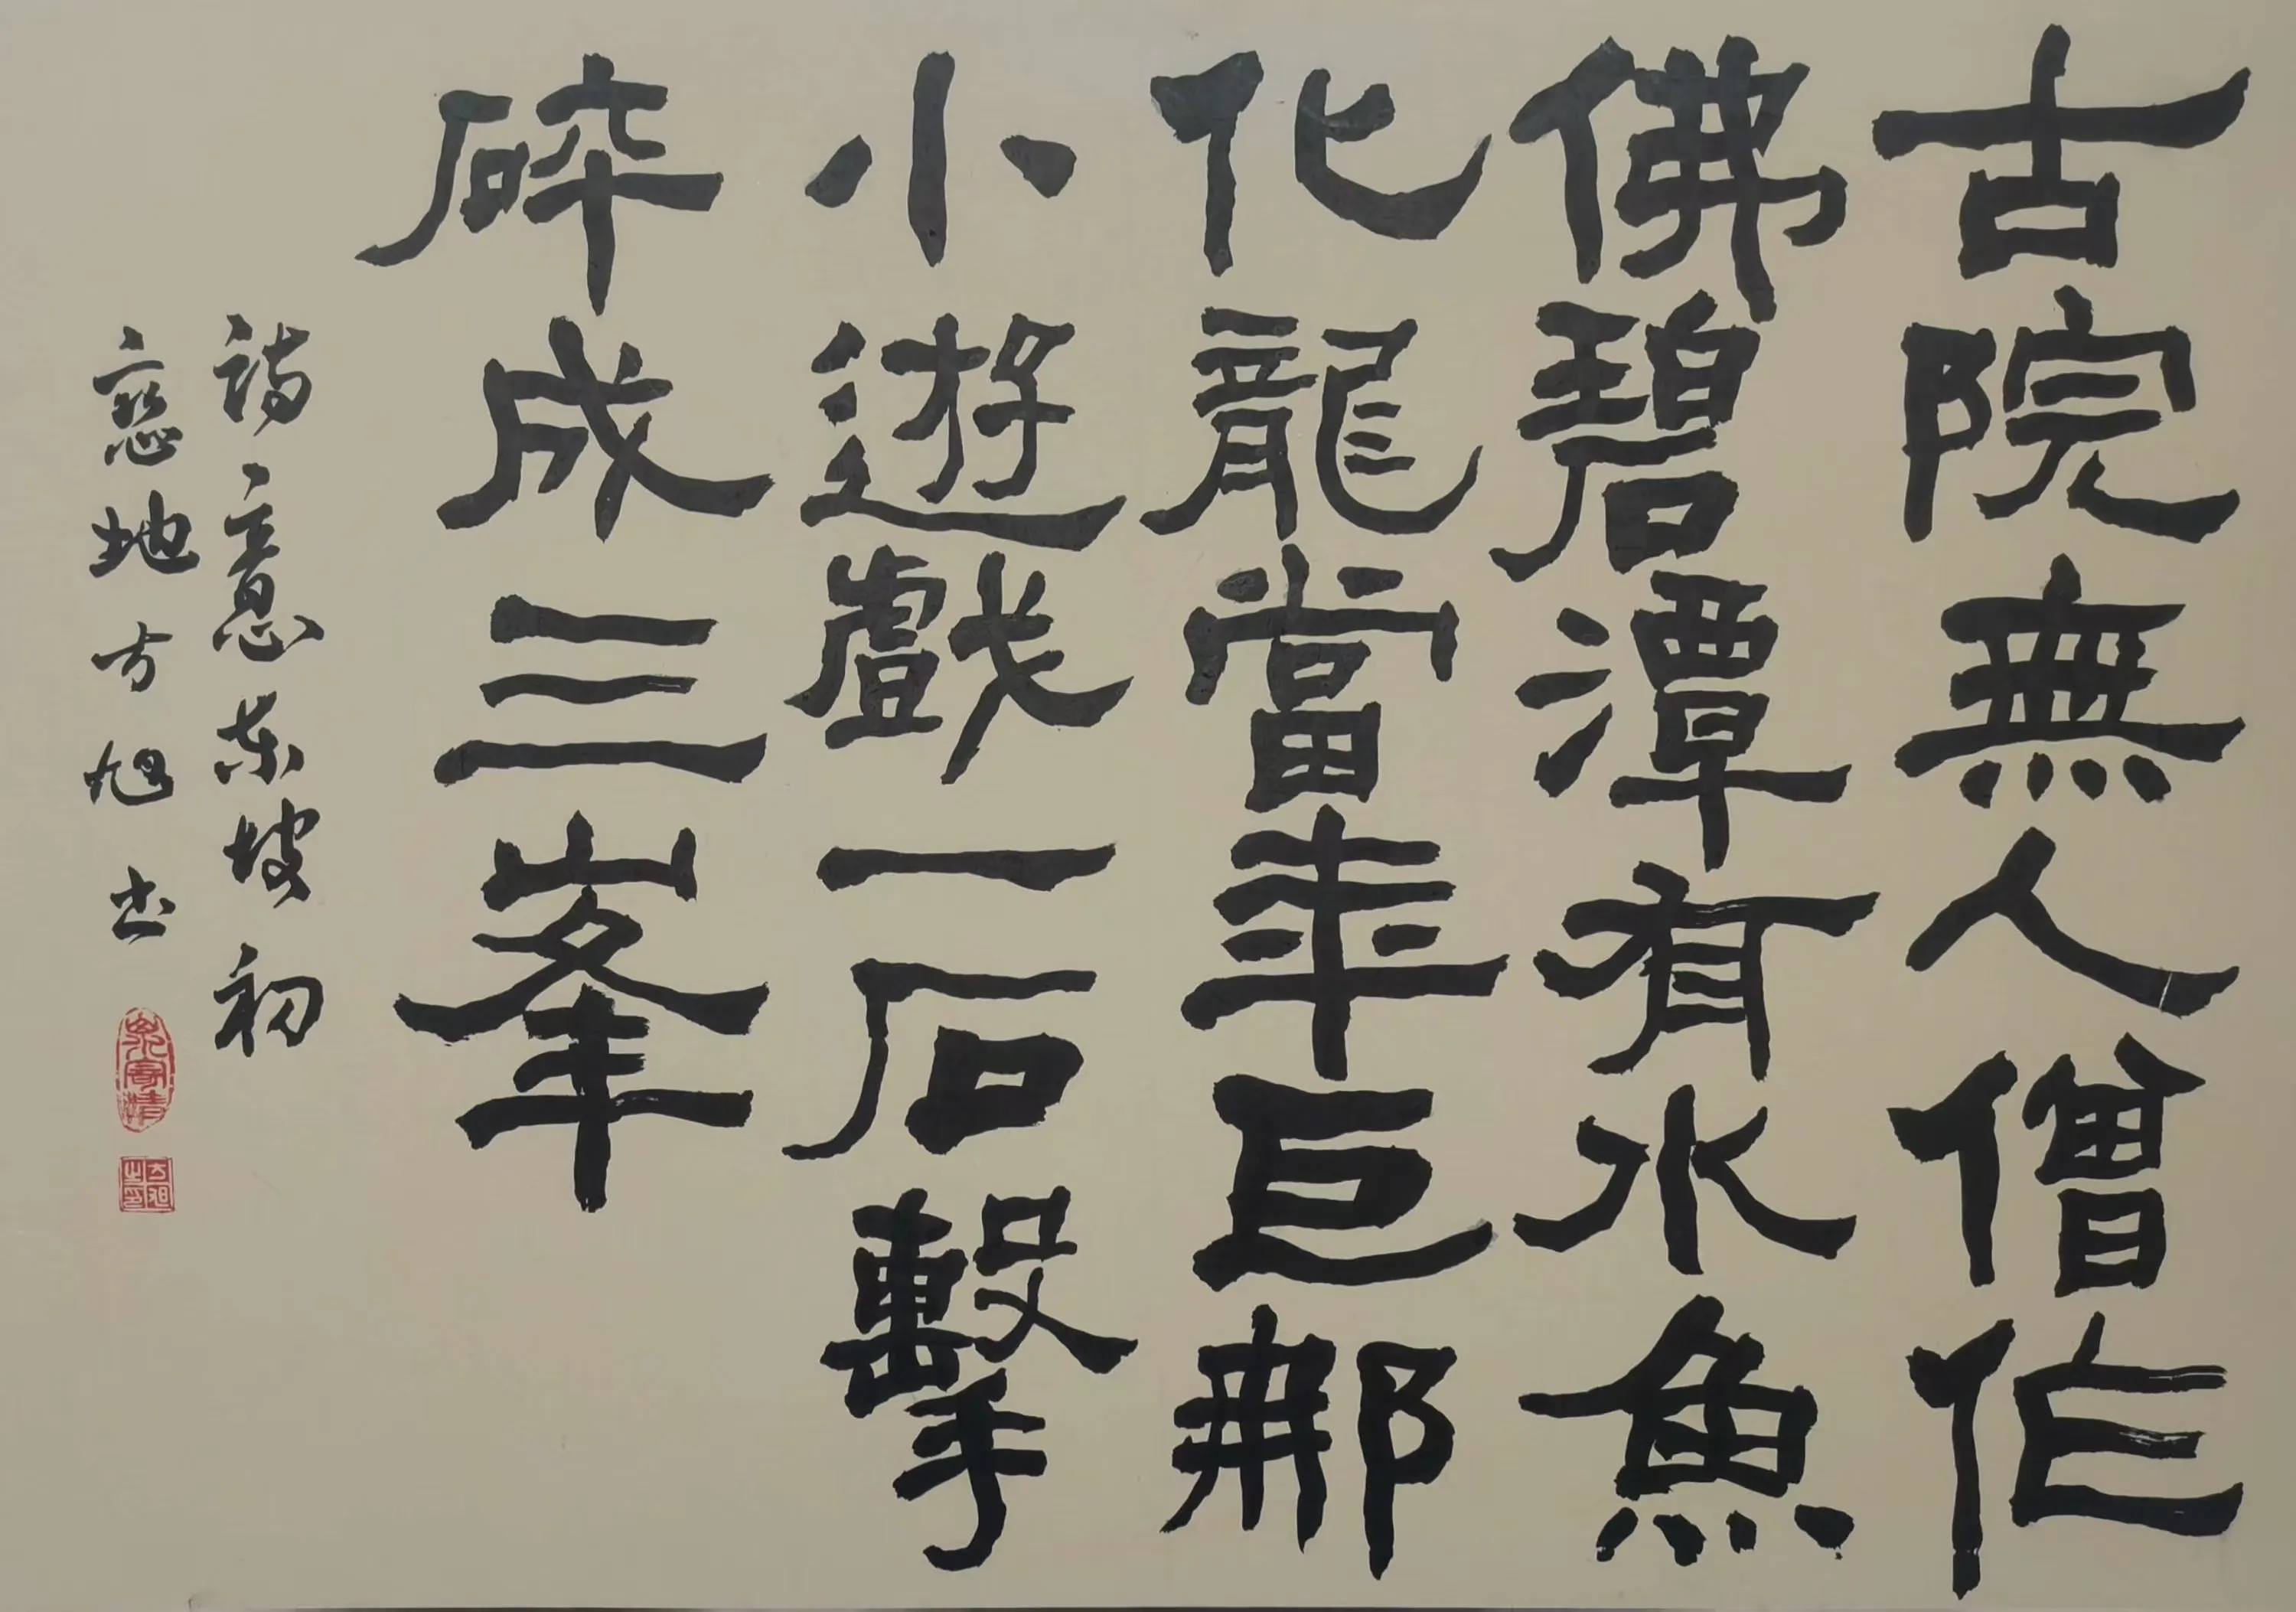 古院無人僧作
佛碧潭有水魚
化龍當年巨那
小遊戲一石擊
碎成三峯
詩意東坡初
戀地方旭书